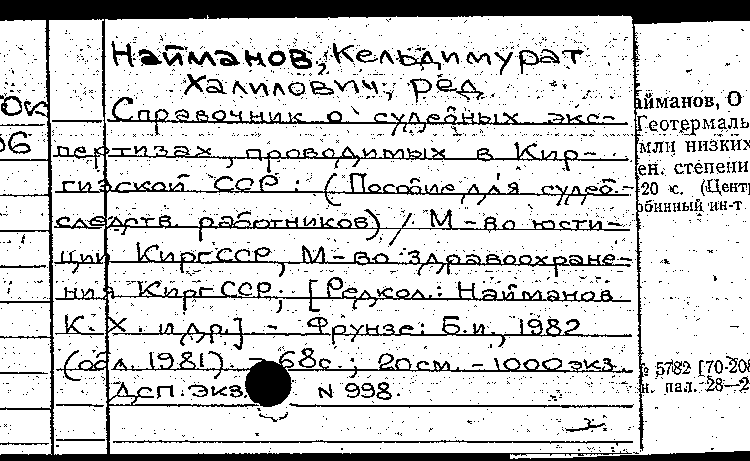 Найманов, Кельдимурат
Халилович, ред.
Справочник о судебных экс-
пертизах, проводимых в Кир-
гизской ССР: (Пособие для судеб.-
следств. работников) / М-во юсти-
ции КиргССР, М-во здравоохране-
ния КиргССР; [Редкол.: Найманов
К. Х. и др.] - Фрунзе: Б.и., 1982
(обл. 1981). - 68с.; 20см. - 1000 экз.
Дсп. экз. N 998.
ок
06
айманов, О
Геотермаль
мли низких
ен. степени
20 с. (Центр
обинный ин-т
№ 5782 [70-208
н. пал. 28—2